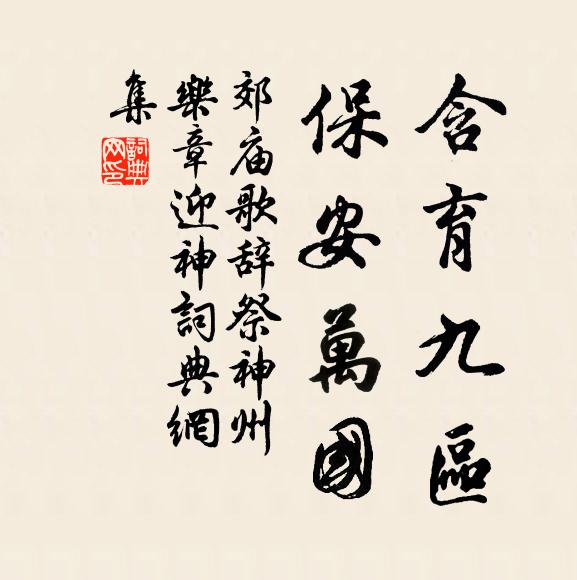 含育九區
保安萬國
郊庙歌辞祭神州
樂章迎神詞典網
集
詞典
网印